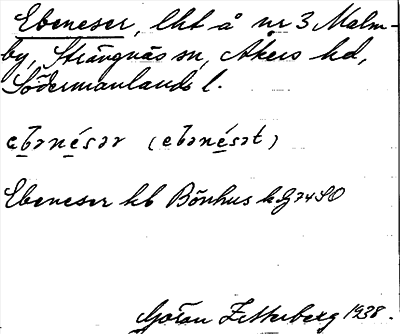 Ebeneser, lht å nr 3 Malm-
by, Strängnäs sn, Åkers hd,
Södermanlands l.
ebənésər (ebənésət)
Ebeneser hb Bönhus k G 24 SO
Göran Zetterberg 1938.